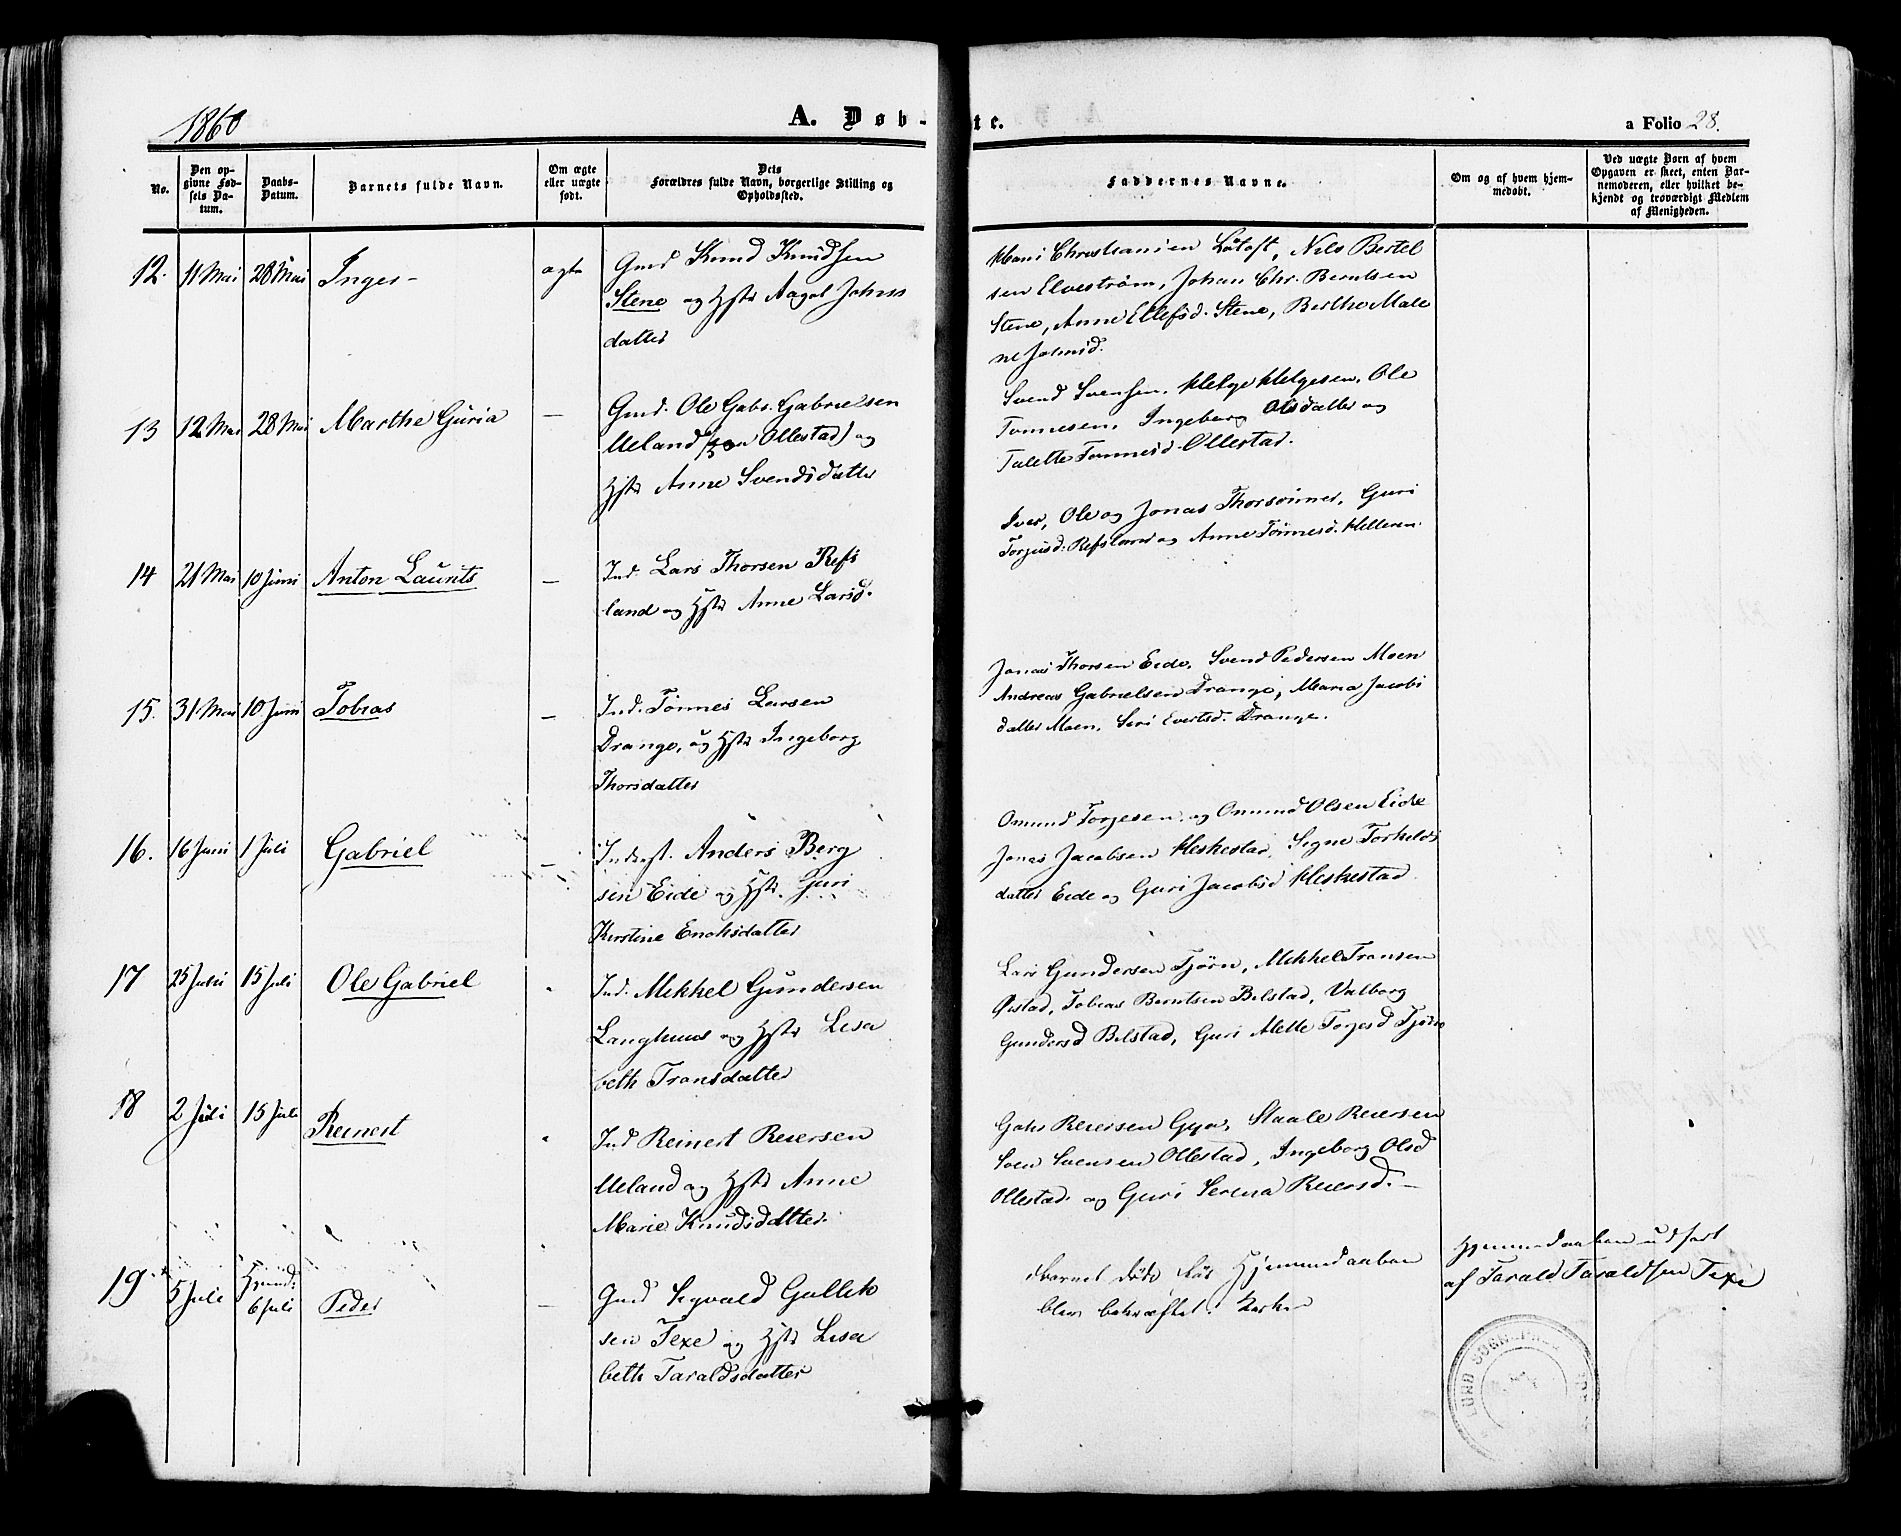 1860
A. Døb-
te.
a Folio 28.
No.
Den op-
givne Fød-
sels Da-
tum.
Daabs-
Datum.
Barnets fulde Navn.
Om ægte
eller uægte
født.
Dets
Forældres fulde Navn, borgerlige Stilling og
Opholdssted.
Faddernes Navne.
Om og af hvem hjem-
medøbt.
Ved uægte Børn af hvem
Opgaven er skeet, enten Bar-
nemoderen, eller hvilket be-
kjendt og troværdigt Medlem
af Menigheden.
12. 11 Mai 28 Mai Inger - ægte
Gmd Knud Knudsen
Stene og Hstr Aagot Johns
datter
Hans Christiansen Løtoft, Nils Bertel
sen Elvestrøm, Johan Chr. Berntsen
Stene, Anne Ellefsd. Stene, Berthe Male
ne Johnsd.
13 12 Mai 28 Mai Marthe Guria —
Gmd. Ole Gabr. Gabrielsen
Ueland og
Hstr Anne Svendsdatter
Svend Svensen, Helge Helgesen, Ole
Tønnesen, Ingeborg Olsdatter og
Talette Tønnesd. Ollestad.
14 21 Mai 10 Juni Anton Laurits —
Ind. Lars Thorsen Refs
land og Hstr Anne Larsd.
Iver, Ole og Jonas Thorsønner, Guri
Torjusd. Refsland og Anne Tønnesd. Helleren.
15. 31 Mai 10 Juni Tobias —
Ind. Tønnes Larsen
Drange, og Hstr Ingeborg
Thorsdatter
Jonas Thorsen Eide, Svend Pedersen Moen
Andreas Gabrielsen Drange, Maria Jacobs
datter Moen, Seri Evertsd. Drange.
16. 16 Juni 1 Juli Gabriel —
Anders Berg
sen Eide og Hstr. Guri
Kirstine Enoksdatter
Omund Torgesen og Omund Olsen Eide
Jonas Jacobsen Heskestad, Signe Torkelds
datter Eide og Guri Jacobsd Heskestad.
17 25 Juni 15 Juli Ole Gabriel
Ind. Mikkel Gundersen
Langhuus og Hstr Lisa
beth Transdatter
Lars Gundersen Tjørn, Mikkel Transen
Øvstad, Tobias Berntsen Bilstad, Valborg
Gundersd Bilstad, Guri Mette Torjesd Tjørn
18 2 Juli 15 Juli Reinert
Ind Reinert Reiersen
Ueland og Hstr Anne
Marie Knudsdatter.
Gabr Reiersen Gya, Staale Reiersen
Sven Svensen Ollestad, Ingeborg Olsd
Ollestad og Guri Serena Reiersd. —
19. 5 Juli Hjemd. 6 Juli Peder —
Gmd Sigvald Gullek
sen Texe og Hstr Lisa
beth Taraldsdatter
Barnet døde før Hjemmedaaben
blev bekræftet i Kirken
Hjemmedaaben udført
af Tarald Taraldsen Texe
LUND SOGNEPRE